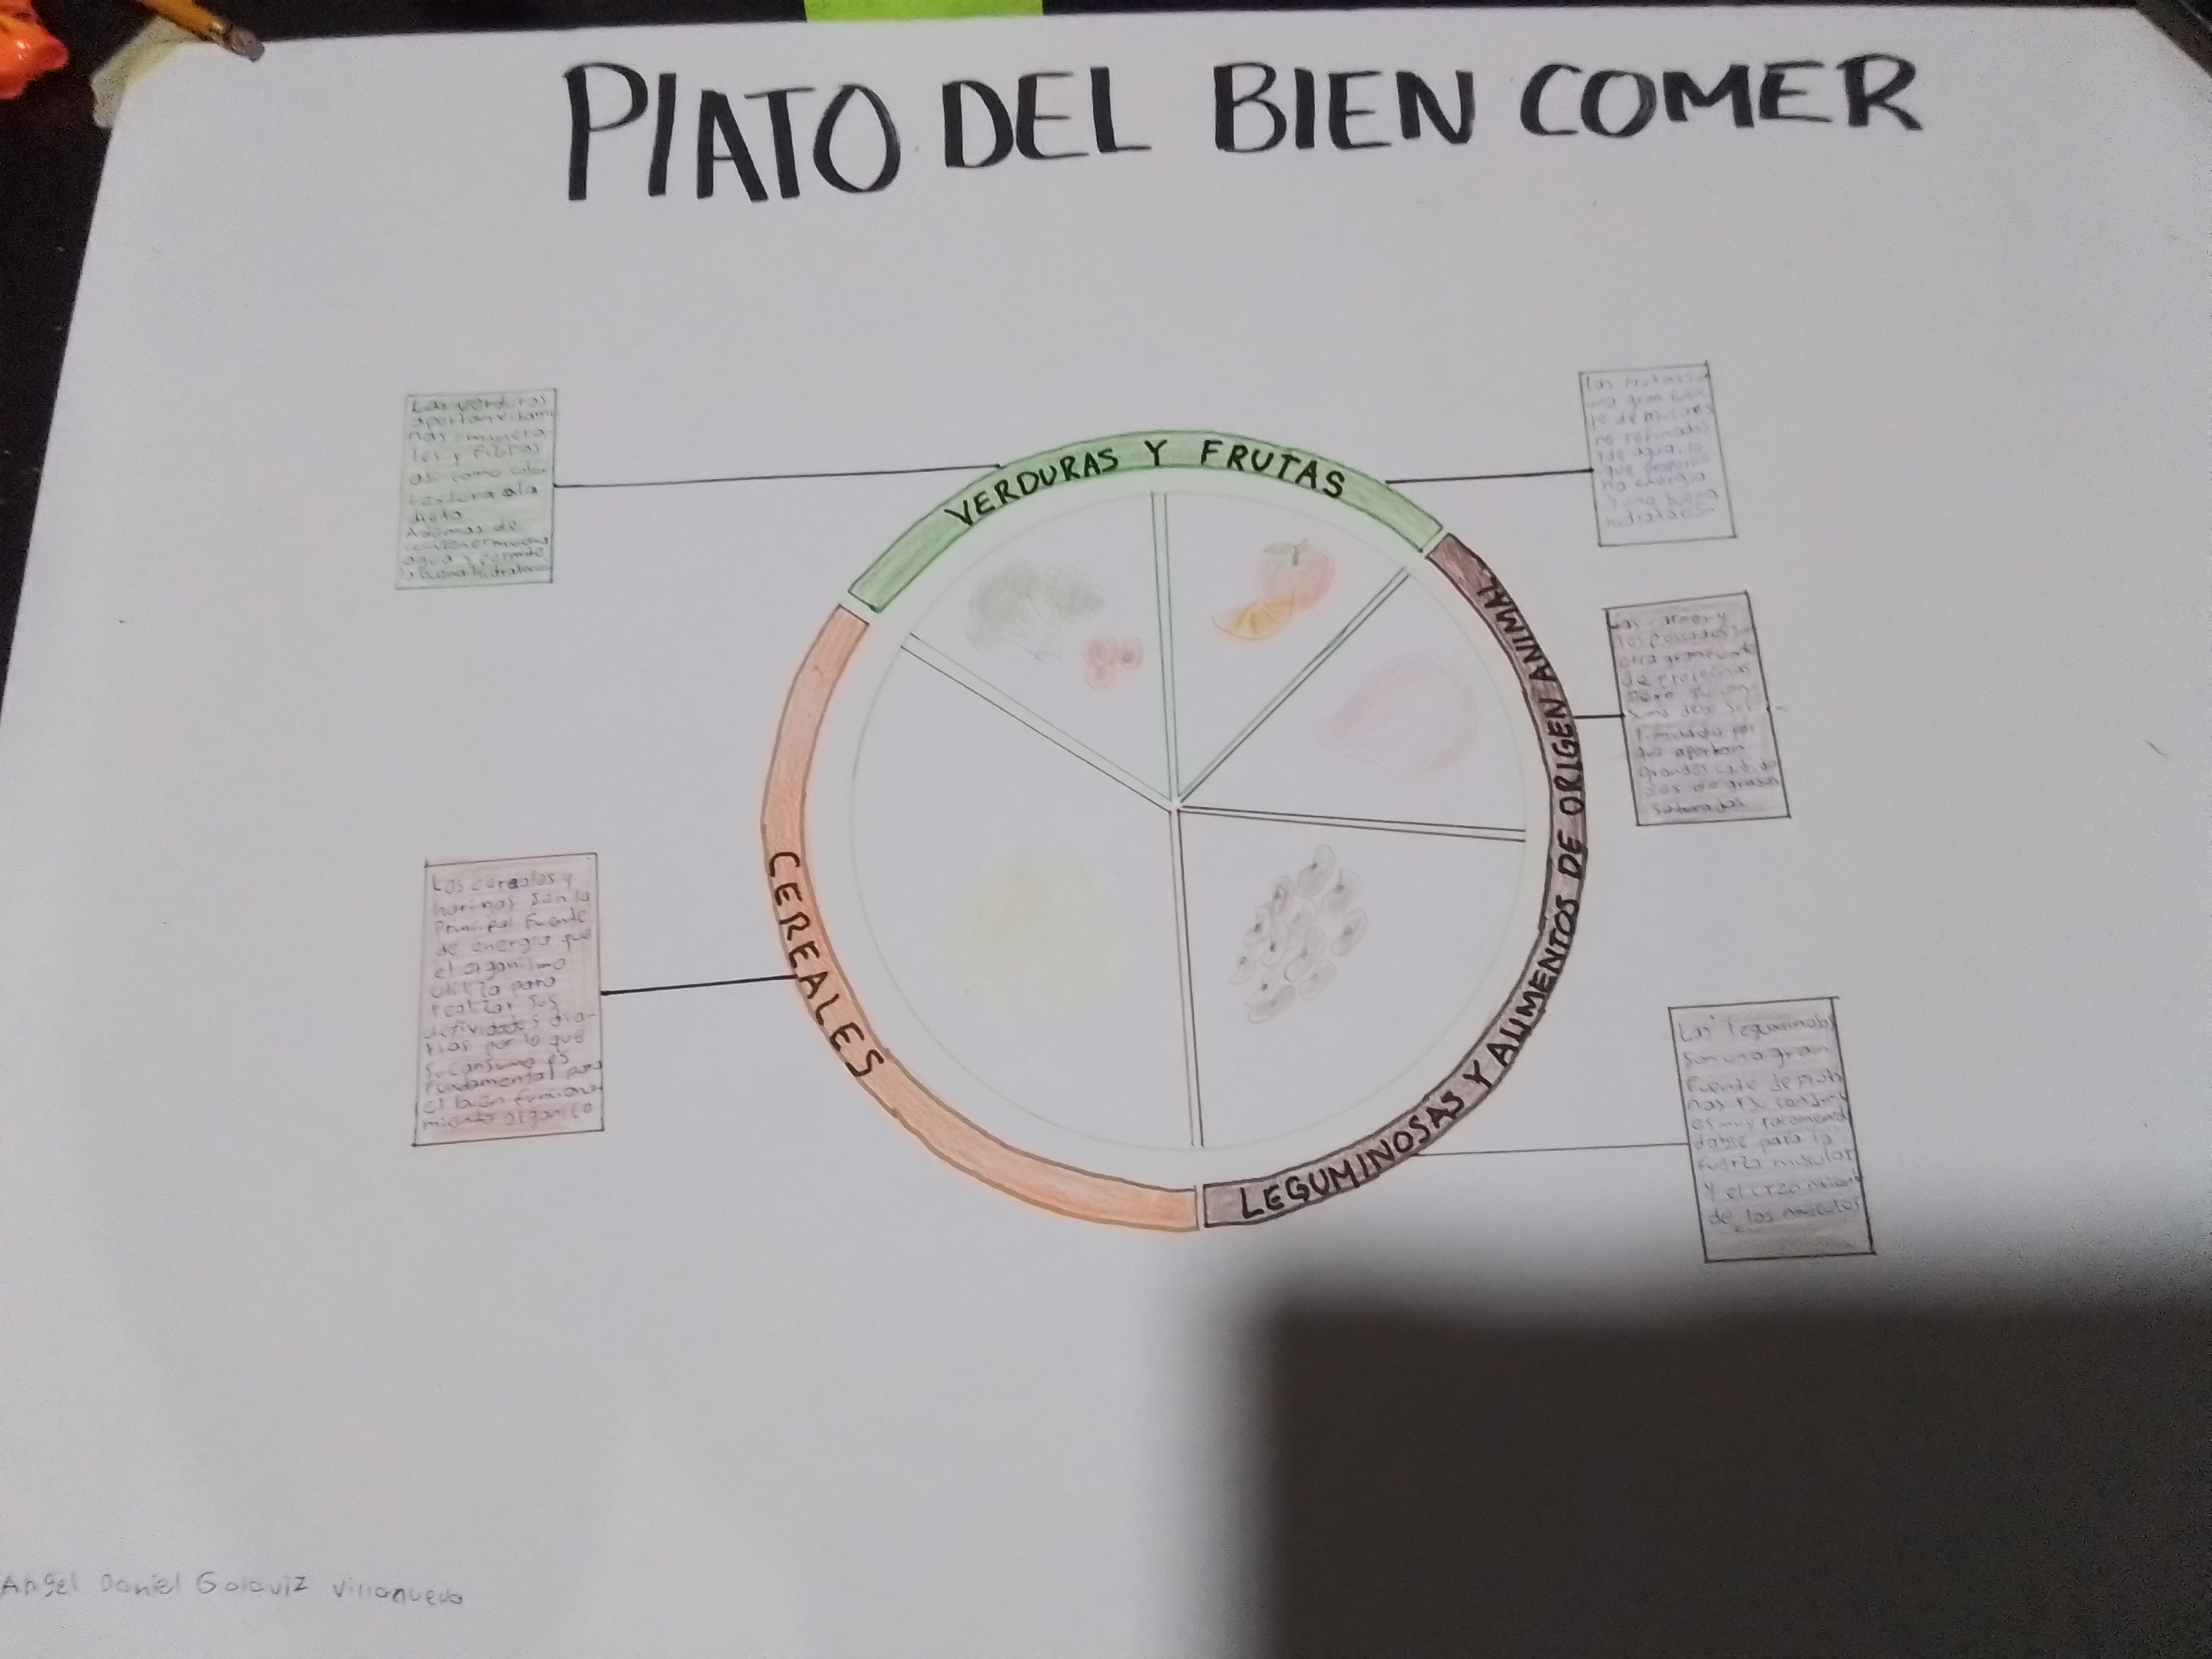 PlATO DEL BIEN COMER
Las verduras
aportan vitami
nas minera-
les y fibras
asi como color
textura a la
dieta
Ademas de
contener mucha
agua y permite
la buena hidratacion
VERDURAS Y FRUTAS
Las frutas
una gran fuen
te de
no refinados
de agua, lo
que proporcio
na energia
y una buena
hidratación
Las carnes y
los pescados
otra gran fuente
de proteinas
pero su con
sumo debe ser
limitado por
que aportan
grandes cantida
des de grasas
saturadas
LEGUMINOSAS Y ALIMENTOS DE ORIGEN ANIMAL
CEREALES
Los cereales y
harinas son la
Principal Fuente
de energia que
el organismo
utiliza para
realizar sus
actividades dia-
rias por lo que
su consumo es
fundamental para
el buen funciona
miento organico
Las leguminosas
son una gran
fuente de protei
nas su consumo
es muy recomen
dable para la
fuerza muscular
y el crecimiento
de los musculos
Angel Daniel Galaviz Villanueva